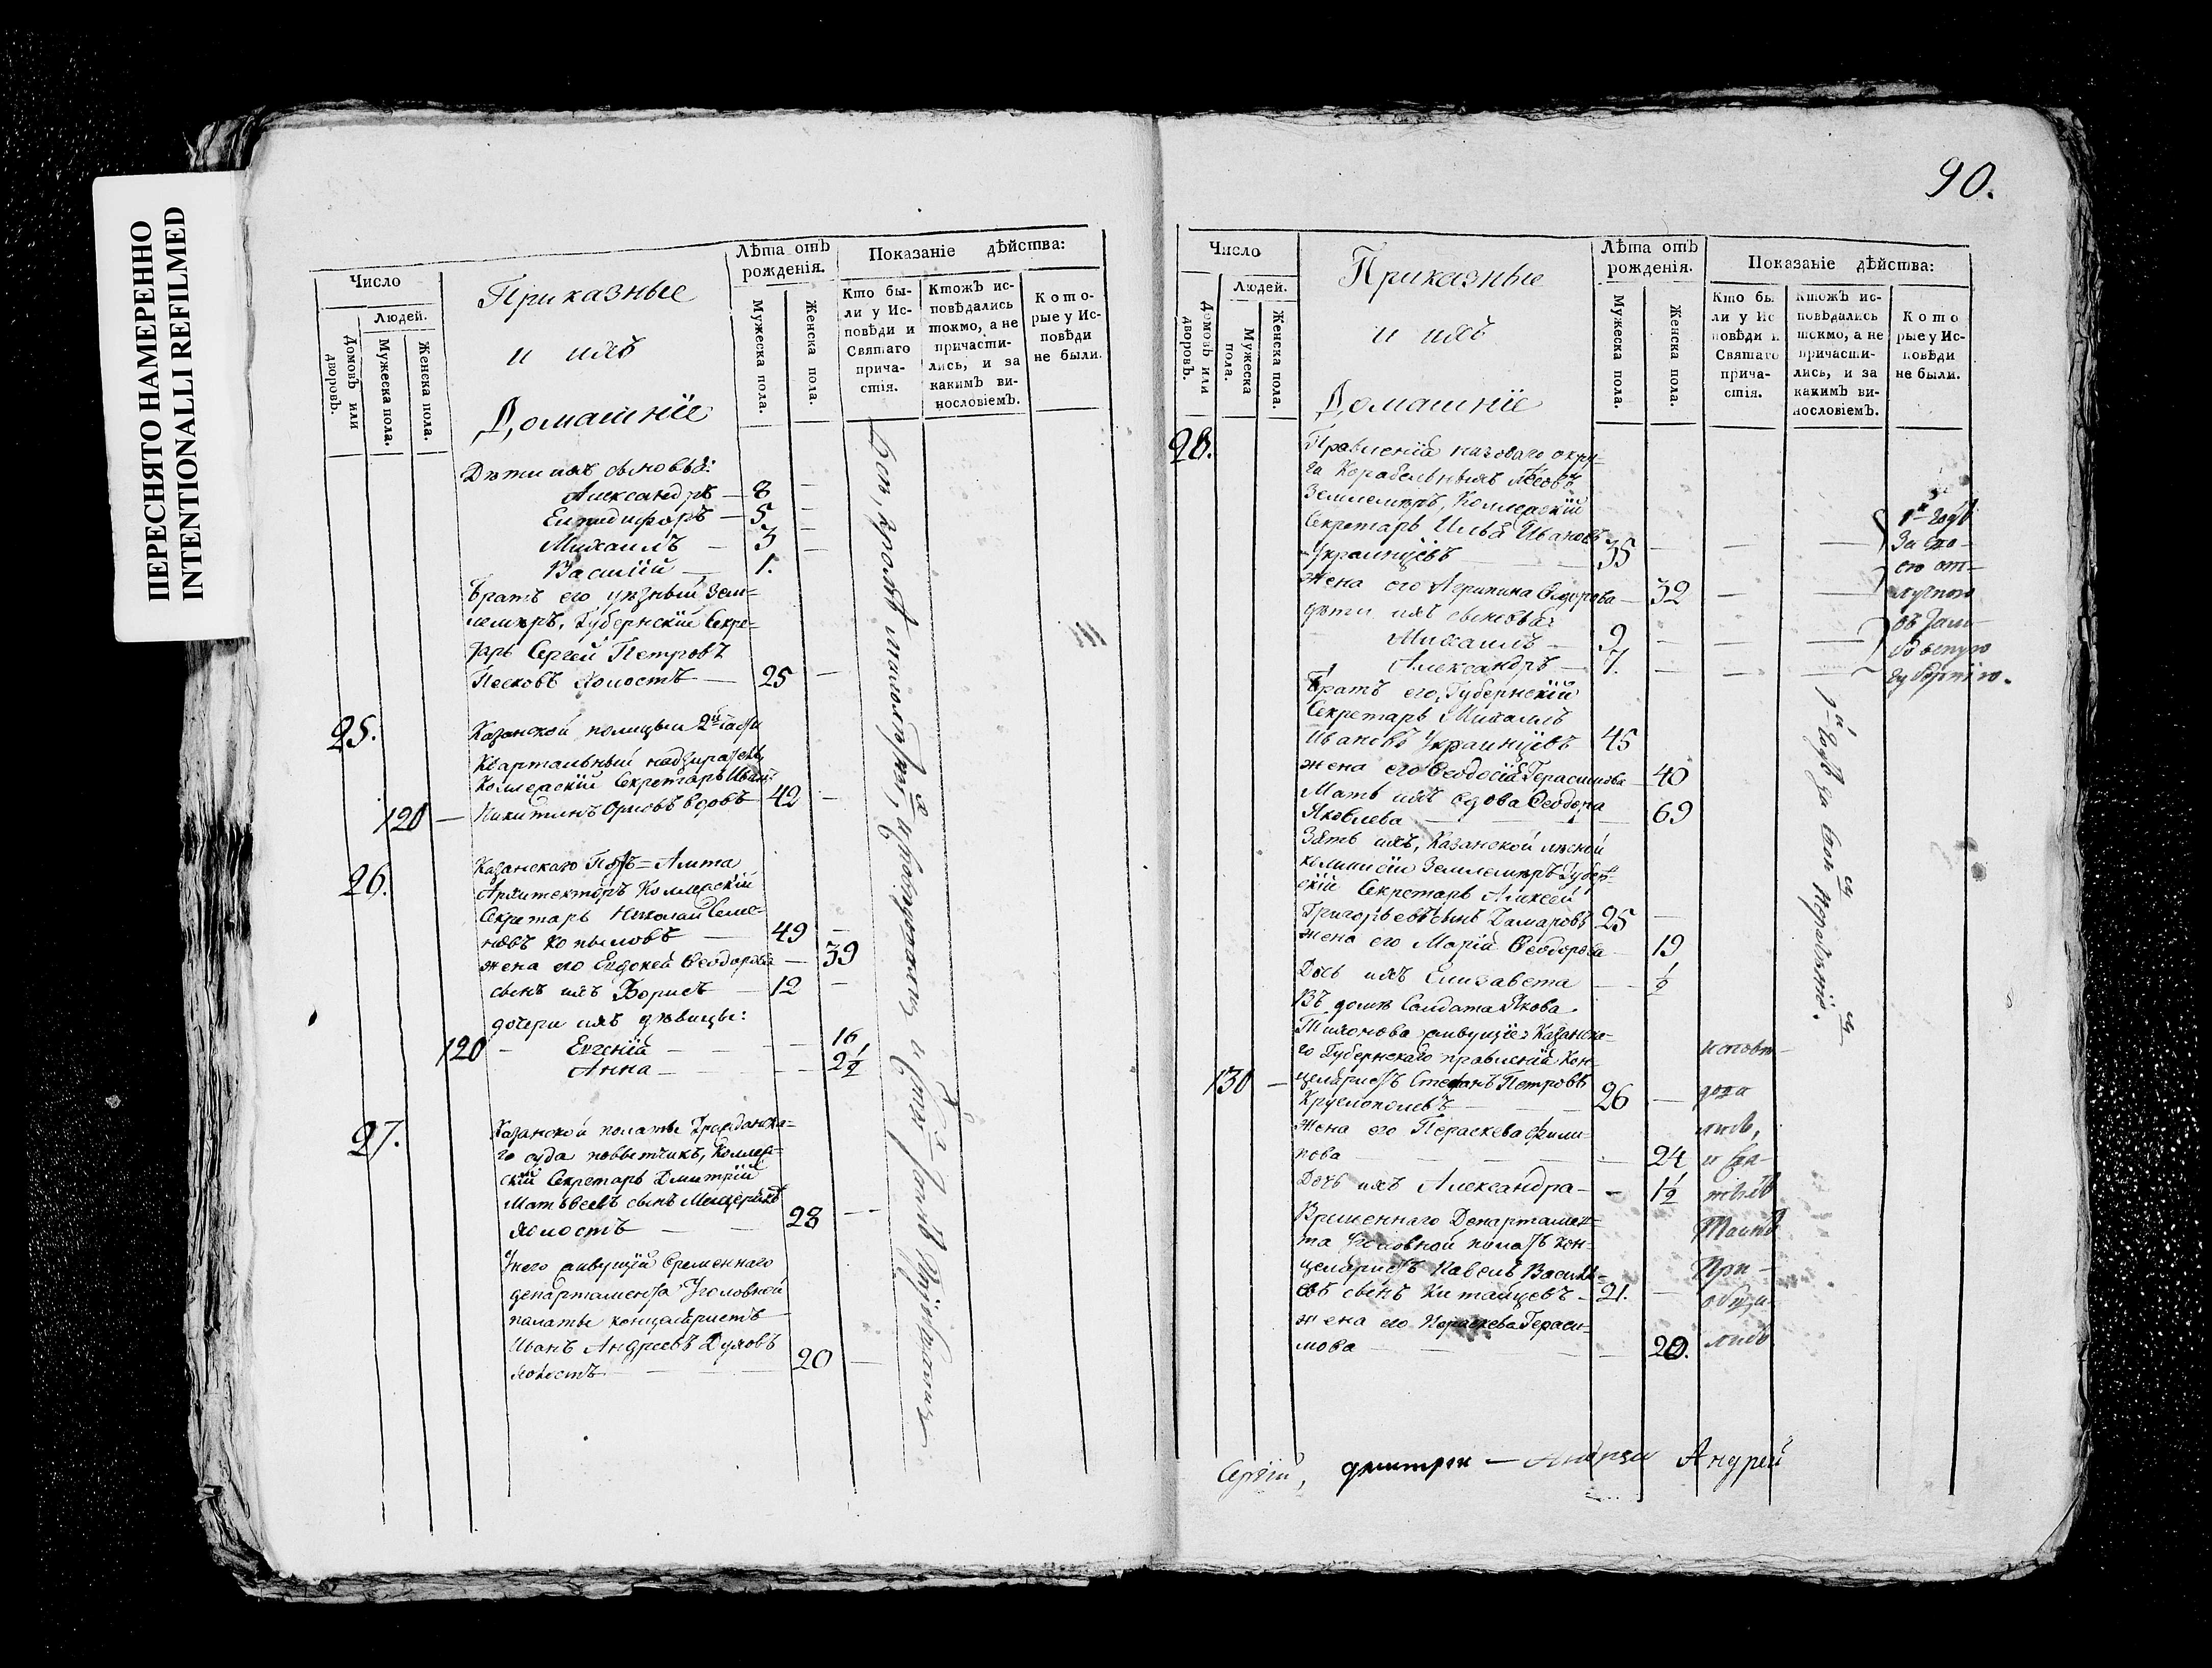 ПЕРЕСНЯТО НАМЕРЕННО
INTENTIONALLI REFILMED
Число
Людей.
Домовъ или дворовъ.
Мужеска пола.
Женска пола.
Приказные
и ихъ
Домашніе
Лѣта отъ рожденія.
Мужеска пола.
Женска пола.
Показаніе дѣйства:
Кто были у Исповѣди и Святаго причастія.
Ктожъ исповѣдались токмо, а не причастились, и за какимъ винословіемъ.
Которые у Исповѣди не были.
Дѣти ихъ сыновья:
Александръ — 8 —
Епидифоръ — 5 —
Михаилъ — 3 —
Василій — 1.
Братъ его уѣзный Зем-
лемѣръ, Губернскій Секре-
тарь Сергей Петровъ
Песковъ холостъ — 25 —
25.
Казанской полиціи 2й части
Квартальный надзиратель,
Коллежскій Секретарь Иванъ
120 — Никитинъ Орловъ вдовъ 42 —
26.
Казанскаго
Архитекторъ Коллежскій
Секретарь Николай Семе-
новъ Копыловъ — 49 —
жена его Евдокея Ѳеодорова — 39
сынъ ихъ Борисъ — 12 —
дочери ихъ дѣвицы:
120 - Евгенія — — — 16
Анна — — — 2½
27.
Казанской полаты Гражданска-
го суда повытчикъ, Коллеж-
скій Секретарь Дмитрій
Матвеевъ сынъ
холостъ — — 28 —
У него живущій Временнаго
департамента Уголовной
палаты концеляристъ
Иванъ Андреевъ Дуловъ
холостъ — — — 20 —
90.
Число
Людей.
Домовъ или дворовъ.
Мужеска пола.
Женска пола.
Приказные
и ихъ
Домашніе
Лѣта отъ рожденія.
Мужеска пола.
Женска пола.
Показаніе дѣйства:
Кто были у Исповѣди и Святаго причастія.
Ктожъ исповѣдались токмо, а не причастились, и за какимъ винословіемъ.
Которые у Исповѣди не были.
28.
Правленія низоваго окру-
га Корабельныхъ Лѣсовъ
Землемѣръ, Коллежскій
Секретарь Илья Ивановъ
Украинцевъ — — 35 — — —
Жена его Агрипина Сидорова — 32 — —
дѣти ихъ сыновья:
Михаилъ — 9 — — —
Александръ — 7. — — —
Братъ его, Губернскій
Секретарь Михаилъ
Ивановъ Украинцовъ 45
жена его Ѳеодосія Герасимова 40
Мать ихъ вдова Ѳеодора
Яковлева — — — 69
Зять ихъ, Казанской лѣсной
комиссіи Землемѣръ Губерн-
скій Секретарь Алексей
Григорьевъ сынъ 25 —
жена его Марія Ѳеодорова — 19
Дочь ихъ Елизавета — ½
Въ домѣ Солдата Якова
Тихонова живущіе: Казанска-
го Губернскаго правленія Кон-
130 — целяристъ Стефанъ Петровъ 26 —
Круглополевъ
Жена его Пераскева Фили-
пова — — — 24
Дочь ихъ Александра — - 1½
Временнаго Департамен-
та Уголовной полаты кон-
целяристъ Павелъ Василь-
евъ сынъ Китайцевъ — 21. —
жена его Пераскева Гераси-
мова — — — 20.
за
его от-
лучкою
въ
Губернію.
исповѣ-
да
лись,
и Свя-
Таинъ
При —
обща-
лись
Сергій, Димитрій — Андрей Андрей